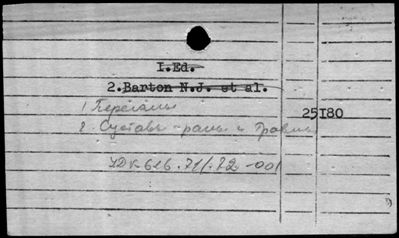 I.Ed.
2.Barton N.J. et al.
1 Переломы
25I80
2 Суставы - раны и травмы
УДК 616.71/.72-001